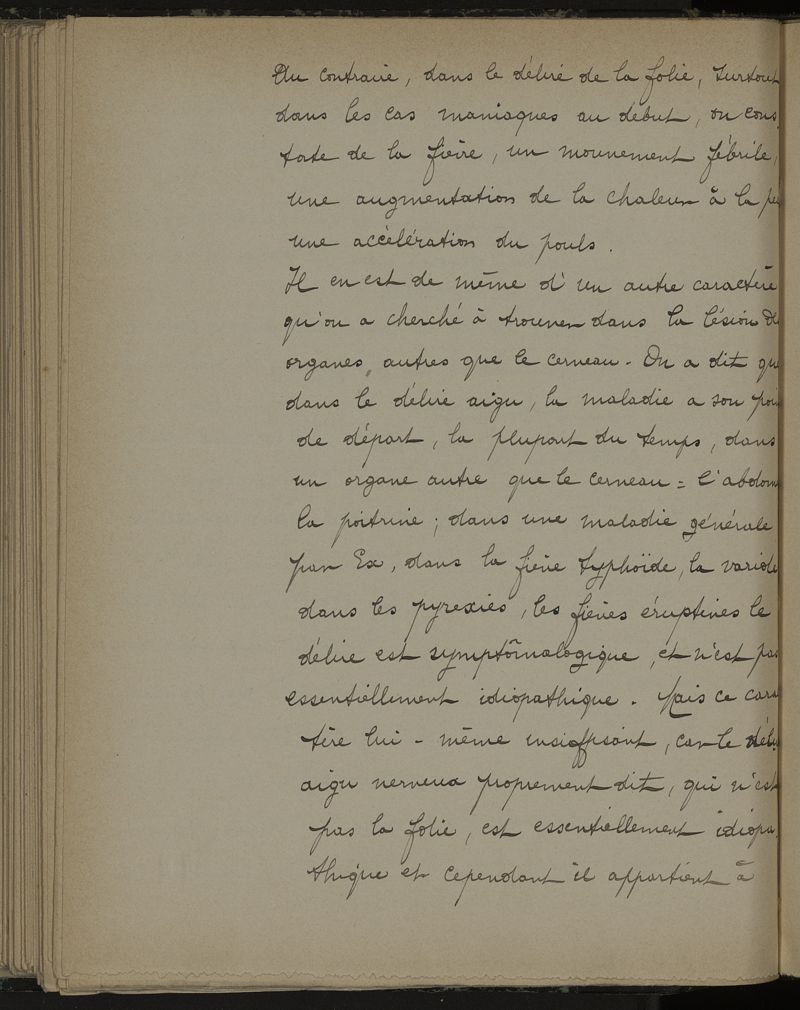 Au contraire, dans le délire de la folie, surtout
dans les cas maniaques au début, on cons
tate de la fièvre, un mouvement fébrile,
une augmentation de la chaleur à la pe
une accélération du pouls.
Il en est de même d'un autre caractère
qu'on a cherché à trouver dans la lésion de
organes autres que le cerveau. On a dit que
dans le délire aigu, la maladie a son poin
de départ, la plupart du temps, dans
un organe autre que le cerveau = l'abdom
la poitrine ; dans une maladie générale
par Ex, dans la fièvre typhoïde, la variole
dans les pyrexies, les fièvres éruptives le
délire est symptômalogique, et n'est pas
essentiellement idiopathique. Mais ce cara
tère lui-même insuffisant, car le déli
aigu nerveux proprement dit, qui n'est
pas la folie, est essentiellement idiopa
thique et cependant il appartient à